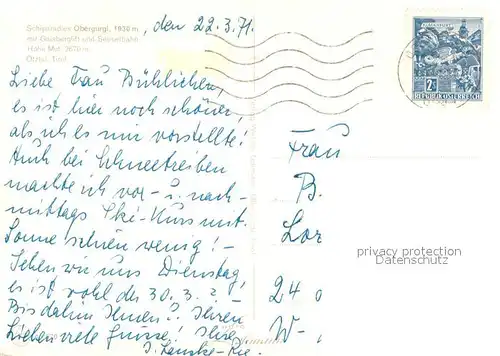 Schiparadies Obergurgl, 1930 m,
mit Gaisberglift und Sesselbahn
Hohe Mut, 2670 m
Ötztal, Tirol
, den 22.3.71.
Liebe Frau
es ist hier noch schöner,
als ich es mir vorstellte!
Auch bei Schneetreiben
machte ich vor- u. nach-
mittags Ski-Kurs mit.
Sonne schien wenig! -
Sehen wir uns Dienstag,
es ist wohl der 30.3.? -
Bis dahin Ihnen u. Ihren
Lieben viele Grüsse! Ihre
2 S
REPUBLIK ÖSTERREICH
Frau
B.
Lor
privacy protection
Datenschutz
24
W-